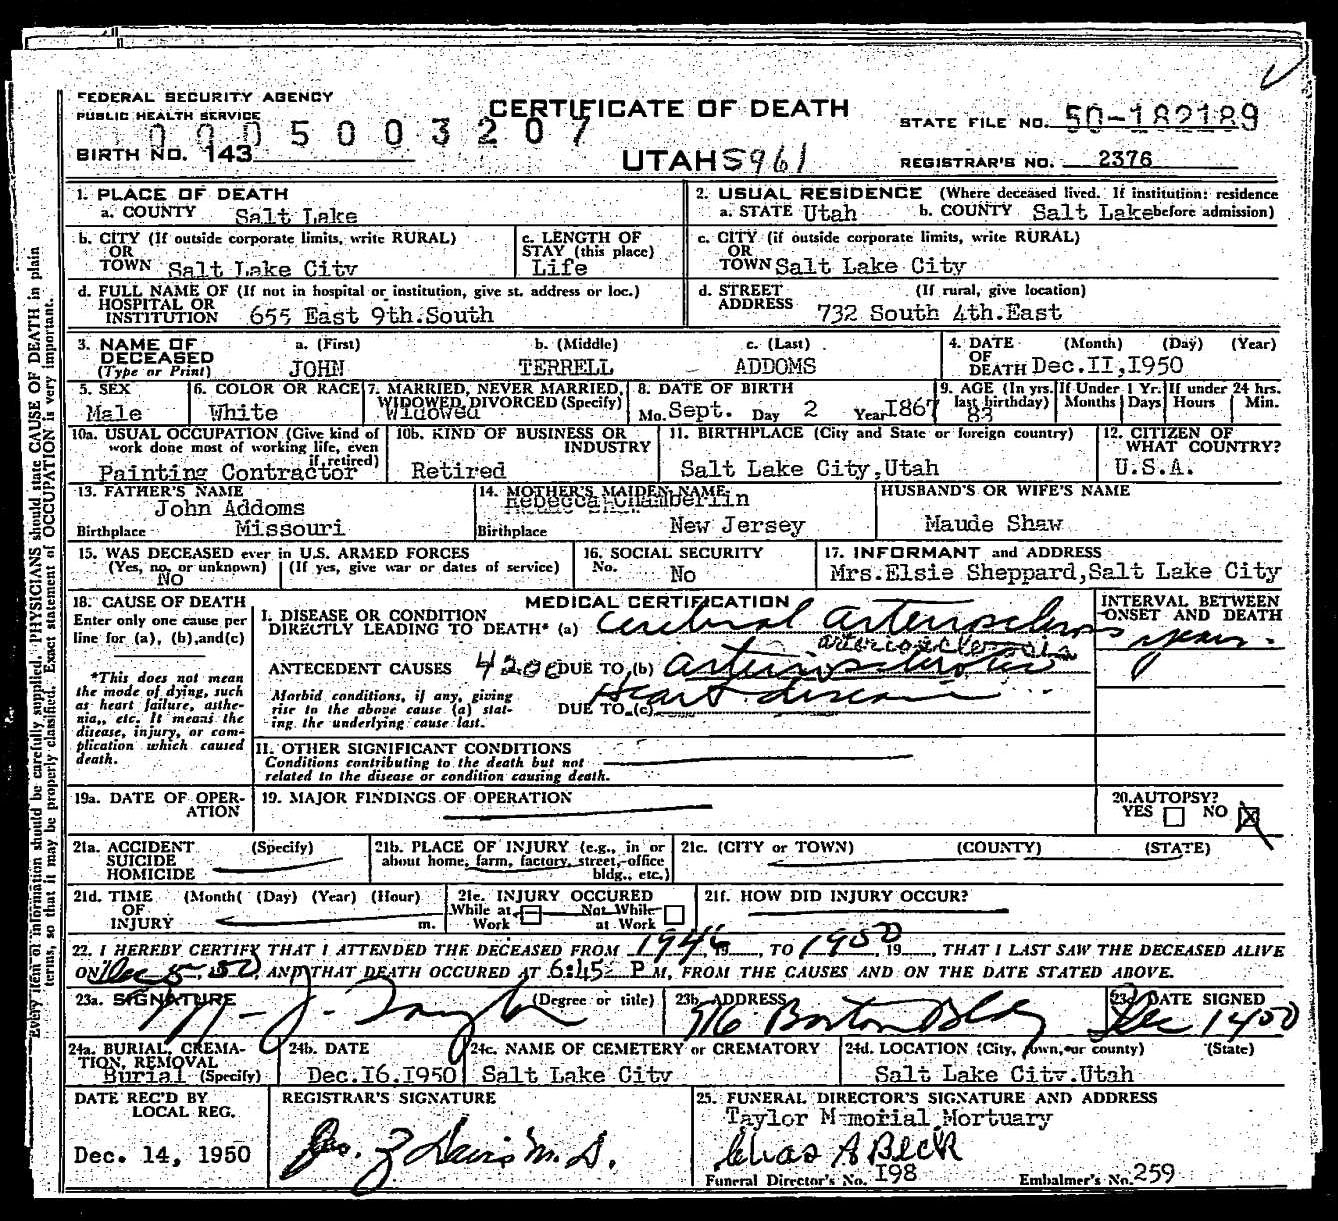 FEDERAL SECURITY AGENCY
PUBLIC HEALTH SERVICE
CERTIFICATE OF DEATH
STATE FILE NO. 50-182189
0005003207
BIRTH NO. 143
UTAH 5961
REGISTRAR'S NO. 2376
1. PLACE OF DEATH
a. COUNTY Salt Lake
2. USUAL RESIDENCE (Where deceased lived. If institution: residence
a. STATE Utah b. COUNTY Salt Lake before admission)
b. CITY (If outside corporate limits, write RURAL)
OR
TOWN Salt Lake City
c. LENGTH OF
STAY (this place)
Life
c. CITY (if outside corporate limits, write RURAL)
OR
TOWN Salt Lake City
d. FULL NAME OF (If not in hospital or institution, give st. address or loc.)
HOSPITAL OR
INSTITUTION 655 East 9th.South
d. STREET (If rural, give location)
ADDRESS 732 South 4th.East
3. NAME OF a. (First) b. (Middle) c. (Last)
DECEASED
(Type or Print) JOHN TERRELL ADDOMS
4. DATE (Month) (Day) (Year)
OF
DEATH Dec.II,I950
5. SEX
Male
6. COLOR OR RACE
White
7. MARRIED, NEVER MARRIED,
WIDOWED, DIVORCED (Specify)
Widowed
8. DATE OF BIRTH
Mo. Sept. Day 2 Year I867
9. AGE (In yrs. If Under 1 Yr. If under 24 hrs.
last birthday) Months Days Hours Min.
83
10a. USUAL OCCUPATION (Give kind of
work done most of working life, even
if retired)
Painting Contractor
10b. KIND OF BUSINESS OR
INDUSTRY
Retired
11. BIRTHPLACE (City and State or foreign country)
Salt Lake City,Utah
12. CITIZEN OF
WHAT COUNTRY?
U.S.A.
13. FATHER'S NAME
John Addoms
Birthplace Missouri
14. MOTHER'S MAIDEN NAME
Rebecca Chamberlin
Birthplace New Jersey
HUSBAND'S OR WIFE'S NAME
Maude Shaw
15. WAS DECEASED ever in U.S. ARMED FORCES
(Yes, no, or unknown) (If yes, give war or dates of service)
No
16. SOCIAL SECURITY
No. No
17. INFORMANT and ADDRESS
Mrs.Elsie Sheppard,Salt Lake City
18. CAUSE OF DEATH
Enter only one cause per
line for (a), (b), and (c)
*This does not mean
the mode of dying, such
as heart failure, asthe-
nia,, etc. It means the
disease, injury, or com-
plication which caused
death.
MEDICAL CERTIFICATION
I. DISEASE OR CONDITION
DIRECTLY LEADING TO DEATH* (a) Cerebral arteriosclerosis
arteriosclerosis
ANTECEDENT CAUSES 4200 DUE TO (b) arteriosclerotic
Morbid conditions, if any, giving
rise to the above cause (a) stat-
ing the underlying cause last.
DUE TO (c) Heart disease
INTERVAL BETWEEN
ONSET AND DEATH
years.
II. OTHER SIGNIFICANT CONDITIONS
Conditions contributing to the death but not
related to the disease or condition causing death.
19a. DATE OF OPER-
ATION
19. MAJOR FINDINGS OF OPERATION
20. AUTOPSY?
YES NO X
21a. ACCIDENT (Specify)
SUICIDE
HOMICIDE
21b. PLACE OF INJURY (e.g., in or
about home, farm, factory, street, office
bldg., etc.)
21c. (CITY or TOWN) (COUNTY) (STATE)
21d. TIME (Month( (Day) (Year) (Hour)
OF
INJURY m.
21e. INJURY OCCURED
While at Not While
Work at Work
21f. HOW DID INJURY OCCUR?
22. I HEREBY CERTIFY THAT I ATTENDED THE DECEASED FROM 1946, 19, TO 1950, 19, THAT I LAST SAW THE DECEASED ALIVE
ON Dec 5-50, AND THAT DEATH OCCURED AT 6:45 P M, FROM THE CAUSES AND ON THE DATE STATED ABOVE.
23a. SIGNATURE (Degree or title)
J. Taylor
23b. ADDRESS
716 Boston Bldg
23c. DATE SIGNED
Dec 14 50
24a. BURIAL, CREMA-
TION, REMOVAL
Burial (Specify)
24b. DATE
Dec.I6.I950
24c. NAME OF CEMETERY or CREMATORY
Salt Lake City
24d. LOCATION (City, town, or county) (State)
Salt Lake City.Utah
DATE REC'D BY
LOCAL REG.
Dec. 14, 1950
REGISTRAR'S SIGNATURE
Geo. Z Davis M.D.
25. FUNERAL DIRECTOR'S SIGNATURE AND ADDRESS
Taylor Memorial Mortuary
Chas A Beck
Funeral Director's No. I98 Embalmer's No. 259
Every item of information should be carefully supplied. PHYSICIANS should state CAUSE OF DEATH in plain
terms, so that it may be properly classified. Exact statement of OCCUPATION is very important.